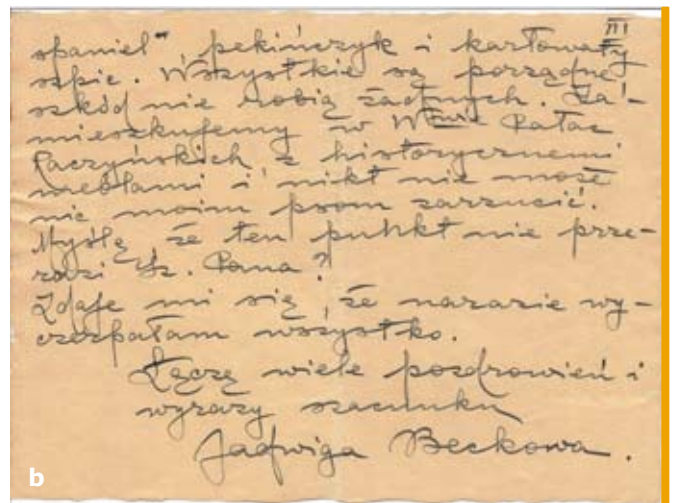 III
spaniel" pekińczyk i karłowaty
szpic. Wszystkie są porządne
szkód nie robią żadnych. Za-
mieszkujemy w W-wie Pałac
Raczyńskich z historycznemi
meblami i nikt nie może
nic moim psom zarzucić.
Myślę, że ten punkt nie prze-
razi Sz. Pana?
Zdaje mi się, że narazie wy-
czerpałam wszystko.
Łączę wiele pozdrowień i
wyrazy szacunku
Jadwiga Beckowa.
b